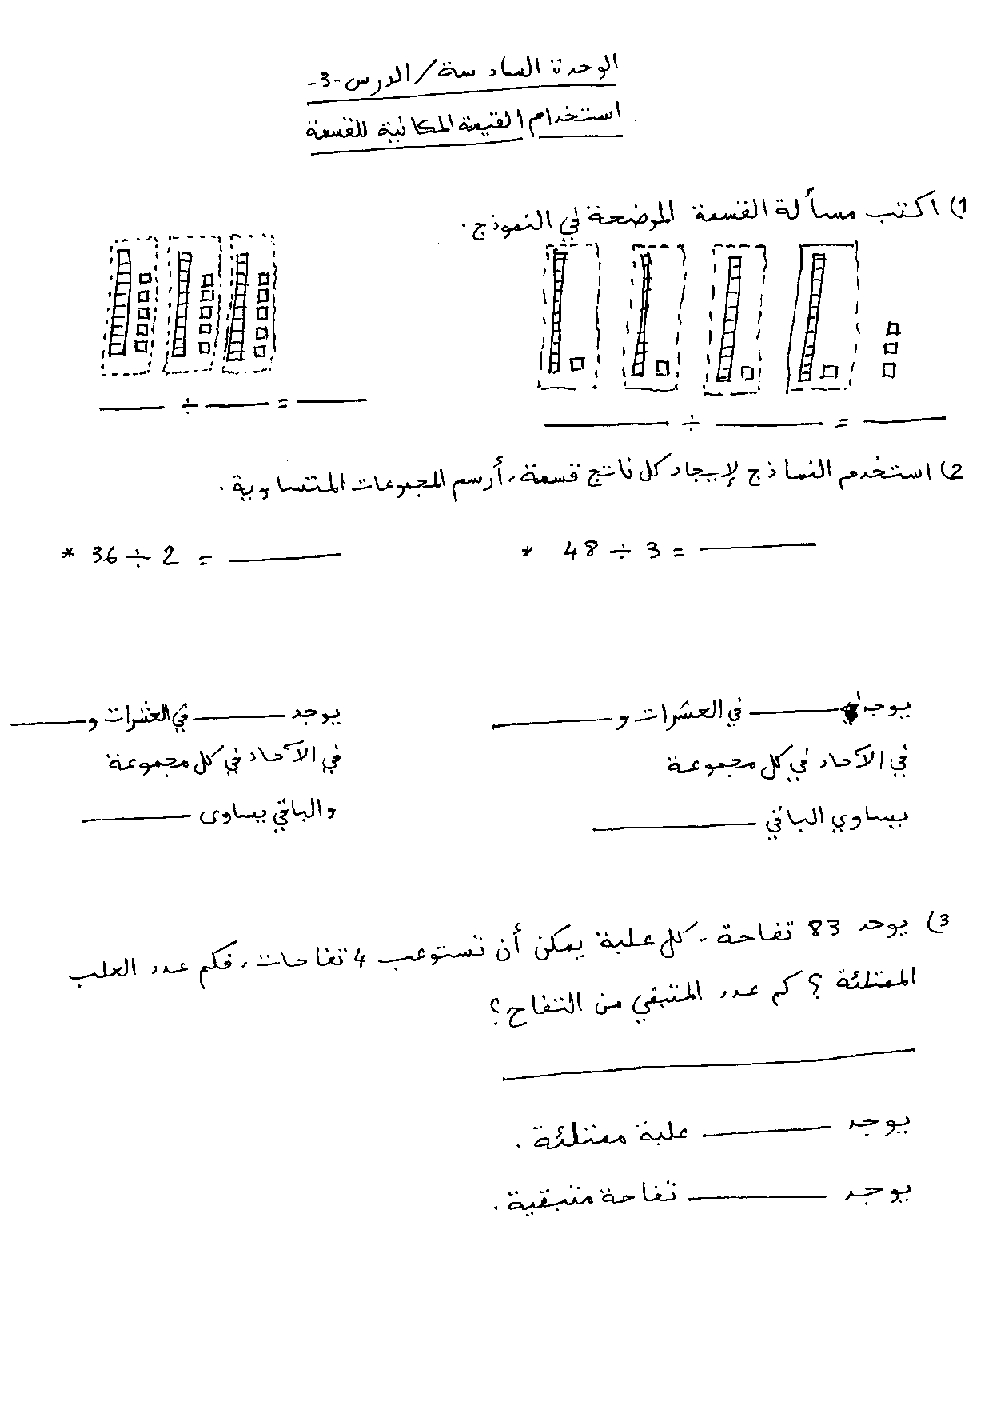 الوحدة السادسة / الدرس -3-
استخدام القيمة المكانية للقسمة
1) اكتب مسألة القسمة الموضحة في النموذج.
____ ÷ ____ = ____
____ ÷ ____ = ____
2) استخدم النماذج لإيجاد كل ناتج قسمة، أرسم المجموعات المتساوية.
* 48 ÷ 3 = ____
* 36 ÷ 2 = ____
يوجد ____ في العشرات و ____
في الآحاد في كل مجموعة
يساوي الباقي ____
يوجد ____ في العشرات و ____
في الآحاد في كل مجموعة
والباقي يساوى ____
3) يوجد 83 تفاحة. كل علبة يمكن أن تستوعب 4 تفاحات. فكم عدد العلب
الممتلئة ؟ كم عدد المتبقي من التفاح ؟
____
يوجد ____ علبة ممتلئة.
يوجد ____ تفاحة متبقية.